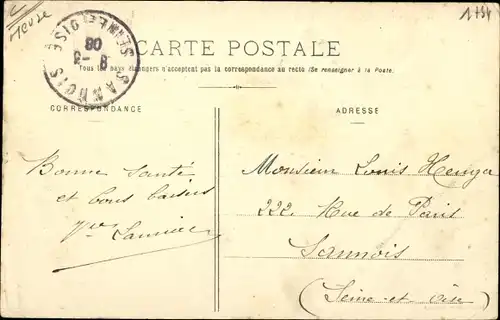 Meuse
1454
CARTE POSTALE
Tous les pays étrangers n'acceptent pas la correspondance au recto (Se renseigner à la Poste.
SANNOIS
SEINE-ET-OISE
8 -3
08
CORRESPONDANCE
ADRESSE
Bonne santé
et bons baisers
Vve
Monsieur Louis
222 Rue de Paris
Sannois
(Seine-et-Oise